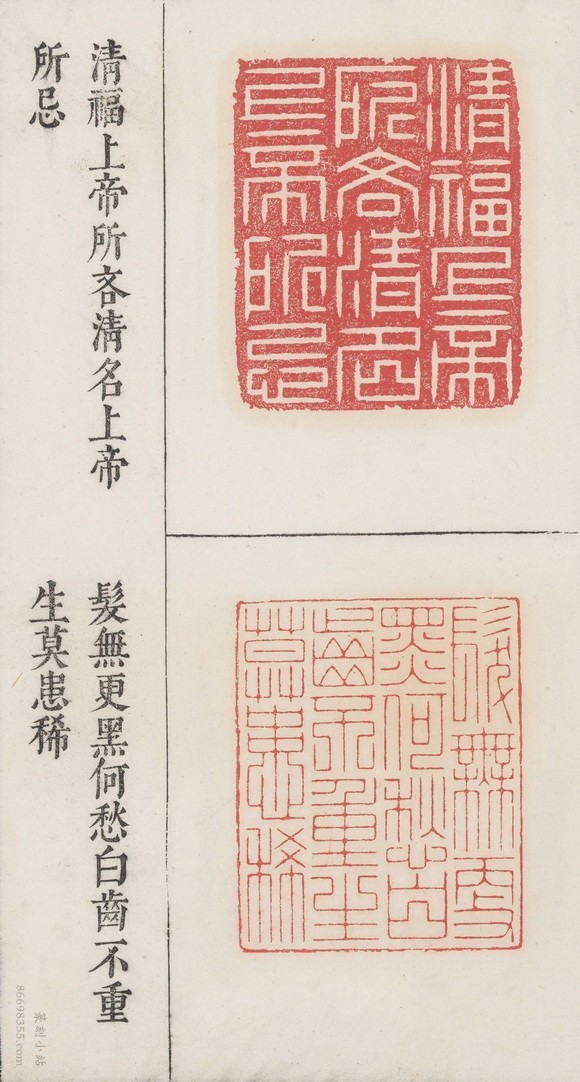 清福上帝
所吝清名
上帝所忌
清福上帝所吝清名上帝
所忌
髮無更
黑何愁白
齒不重生
莫患稀
髮無更黑何愁白齒不重
生莫患稀
篆刻小站
86698355.com